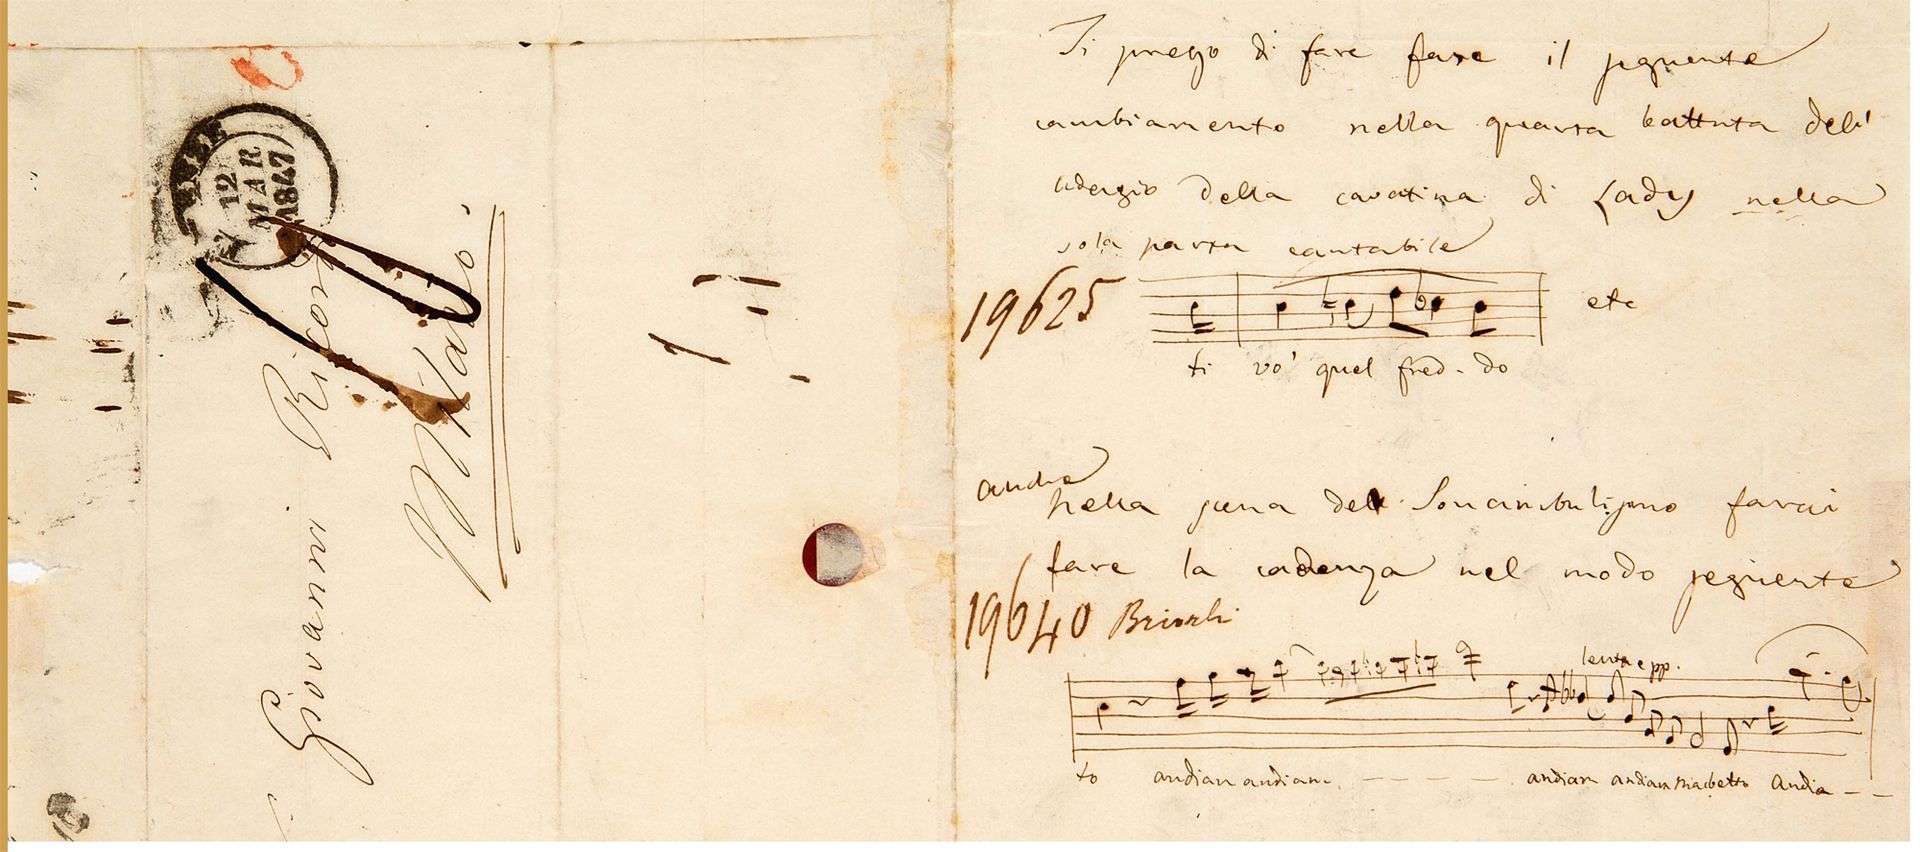 12
MAR
1847
Giovanni Ricordi
Milano
Ti prego di fare fare il seguente
cambiamento nella quarta battuta dell'
adagio della cavatina di Lady nella
sola parte cantabile
19625
etc
ti vo' quel fred - do
anche
Nella scena del Sonnambulismo farai
fare la cadenza nel modo seguente
19640
lenta e pp.
to andiam andiam - - - - - andiam andiam Macbetto Andia - -